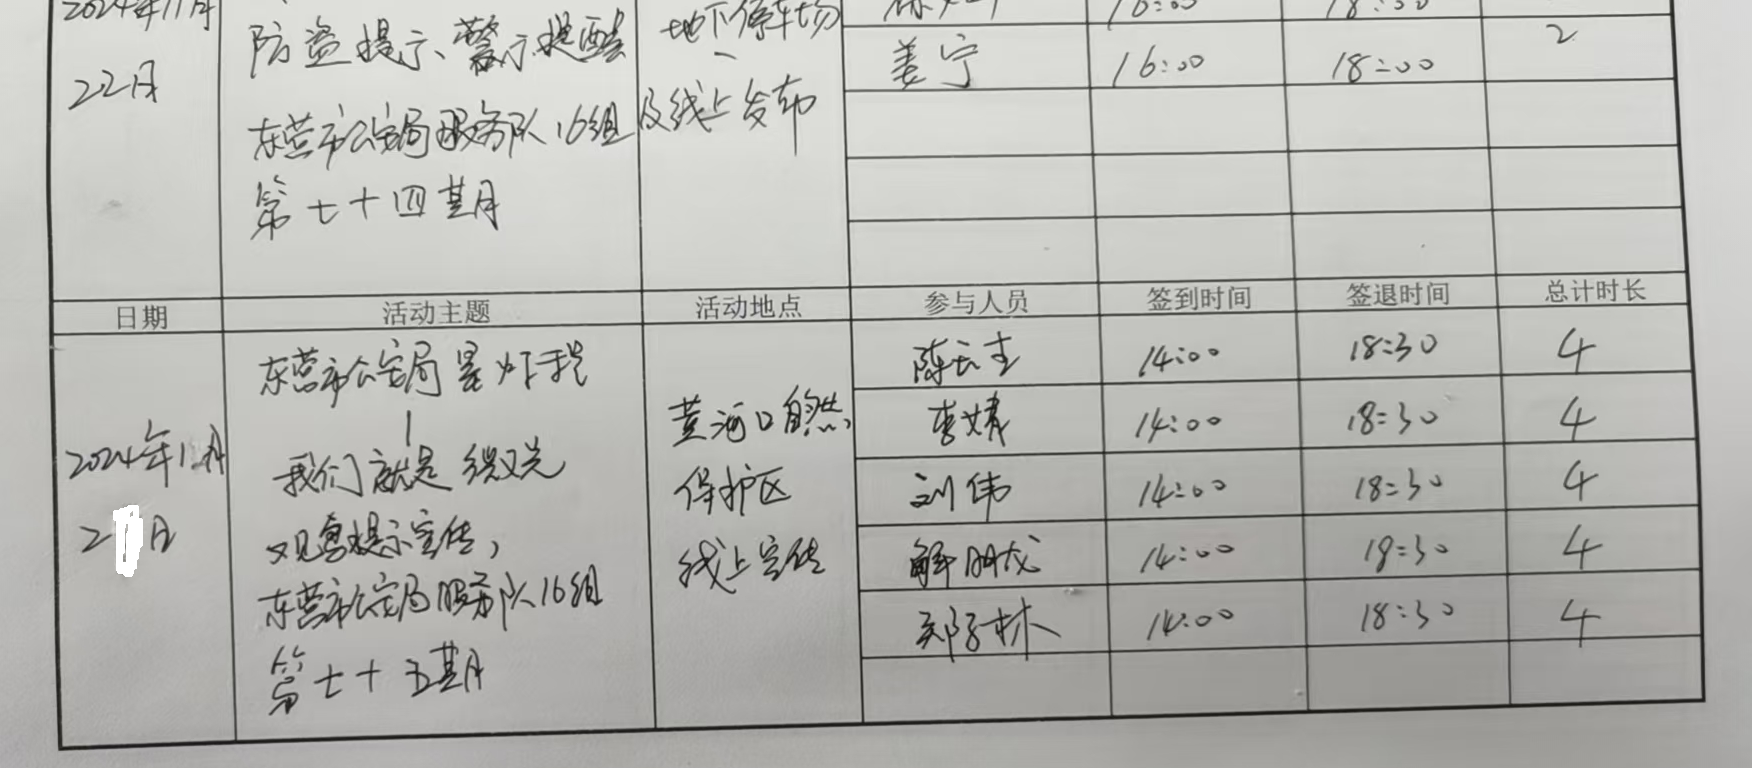 2024年11月
22日
防盗提示、警示提醒
东营市公安局服务队16组
第七十四期
地下停车场
及线上发布
16:00 18:00
姜宁 16:00 18:00 2
日期 活动主题 活动地点 参与人员 签到时间 签退时间 总计时长
2024年1月
2 日
东营市公安局
我们就是
提示宣传,
东营市公安局服务队16组
第七十五期
黄河口自然
保护区
线上宣传
14:00 18:30 4
李婧 14:00 18:30 4
刘伟 14:00 18:30 4
解朋龙 14:00 18:30 4
郑子林 14:00 18:30 4